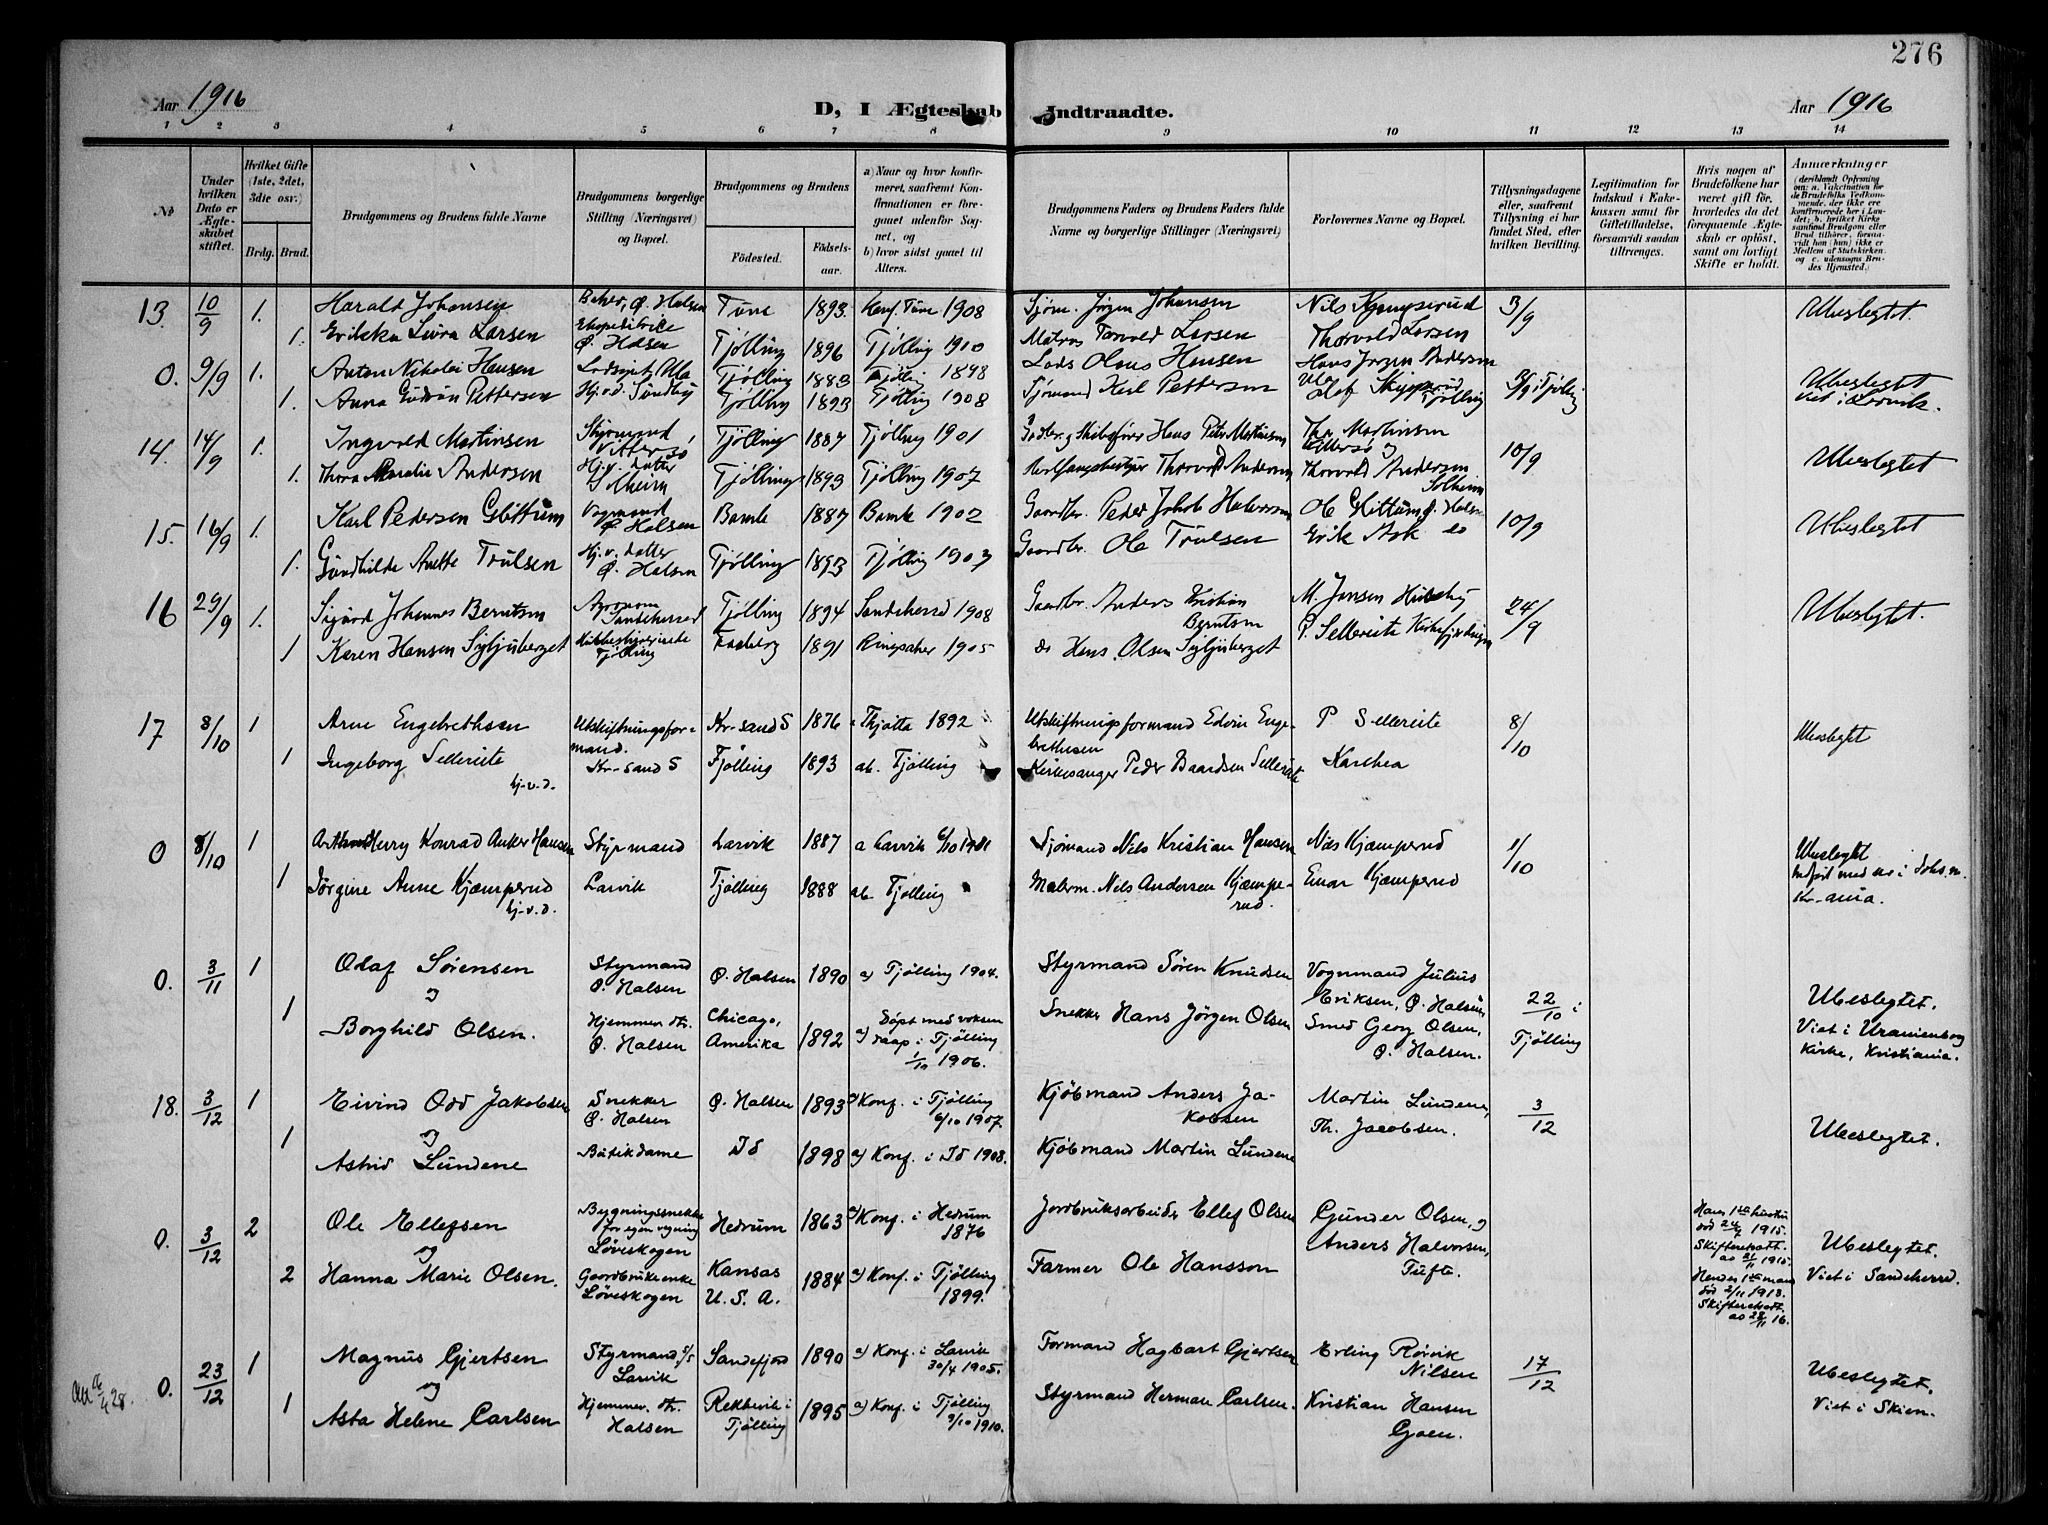 276
Aar 1916
D, I Ægteskab Indtraadte.
Aar 1916
1 2 3 4 5 6 7 8 9 10 11 12 13 14
№
Under hvilken Dato er Ægteskabet stiftet.
Hvilket Gifte (1ste, 2det, 3die osv.)
Brdg. Brud.
Brudgommens og Brudens fulde Navne
Brudgommens borgerlige Stilling (Næringsvei) og Bopæl.
Brudgommens og Brudens
Fødested.
Fødselsaar.
a) Naar og hvor konfirmeret, saafremt Konfirmationen er foregaaet udenfor Sognet, og
b) hvor sidst gaaet til Alters.
Brudgommens Faders og Brudens Faders fulde Navne og borgerlige Stillinger (Næringsvei)
Forlovernes Navne og Bopæl.
Tillysningsdagene eller, saafremt Tillysning ei har fundet Sted, efter hvilken Bevilling.
Legitimation for Indskud i Enkekassen samt for Giftetilladelse, forsaavidt saadan tiltrænges.
Hvis nogen af Brudefolkene har været gift før, hvorledes da det foregaaende Ægteskab er opløst, samt om lovligt Skifte er holdt.
Anmærkninger
(deriblandt Oplysning om: a. Vakcination for de Brudefolks Vedkommende, der ikke ere konfirmerede her i Landet; b. hvilket Kirkesamfund Brudgom eller Brud tilhører, forsaavidt han (hun) ikke er Medlem af Statskirken, og c. udensogns Brudes Hjemsted.)
13. 10/9 1. Harald Johansen Tune 1893. Konf. Tune 1908 Sjøm. Jørgen Johansen Nils Kjæmperud 3/9 Ubeslegtet.
1. Larsen Ø. Halsen Tjølling 1896 Tjølling 1910 Matros Torvald Larsen Thorvald Larsen
0. 9/9 1. Anton Nikolai Hansen Tjølling 1883 Tjølling 1898 Lods Olaus Hansen Hans Jrgen Andersen
1. Anna Gudrun Pettersen Hj.v.d. Sundby Tjølling 1893 Tjølling 1908 Sjømand Karl Pettersen Tjølling 3/9 i Tjølling Ubeslegtet Viet i Larvik.
14. 14/9 1. Ingvald Martinsen Styrmand, Tjølling 1887 Tjølling 1901 Hans Petr Martinsen Thr. Martinsen 10/9 Ubeslegtet
1. Thora Amalie Andersen Hj.v. datter Solheim Tjølling 1893 Tjølling 1907 Thorvald Andersen Thorvald Andersen Solheim
15. 16/9 1. Karl Pedersen Glittum Vognmand Ø. Halsen Bamle 1887 Bamle 1902 Gaardbr. Peder Jakob Halvorsen Ole Glittum Ø. Halsen 10/9 Ubeslegtet
1. Gundhilde Anette Trulsen Hj.v. datter Ø. Halsen Tjølling 1893 Tjølling 1907 Gaardbr. Ole Trulsen Erik Ask do
16 29/9 1. Sigurd Johannes Berntsen Agronom Sandeherred Tjølling 1894 Sandeherred 1908 Gaardbr. Anders Kristian Berntsen M. Jansen Huseby 24/9 Ubeslegtet
1 Karen Hansen Syljuberget Tjølling Faaberg 1891 Ringsaker 1905 do Hans Olsen Syljuberget P. Sellereite
17 8/10 1 Arne Engebrethsen Utskiftningsformand. Kr-sand S Kr-sand S 1876 Thjøtta 1892 Utskiftningsformand Edvin Engebrethsen P Sellereite 8/10 Ubeslegtet
1 Ingeborg Sellereite hj-v-d. Tjølling 1893 ab. Tjølling Kirkesanger Peder Baardsen Sellereite Karthea
0 8/10 1 Henry Konrad Anker Hansen Styrmand Larvik Larvik 1887 a Larvik 6/10 1901 Sjømand Nils Kristian Hansen Nils Kjæmperud 1/10 Ubeslegtet
1 Jørgine Anne Kjæmperud hj-v-d. Tjølling 1888 ab. Tjølling Malerm. Nils Andersen Kjæmperud. Einar Kjæmperud Kr-ania.
0. 3/11 1 Olaf Sørensen Styrmand Ø. Halsen Ø. Halsen 1890 a) Tjølling 1904. Styrmand Søren Knudsen Vognmand Julius Eriksen, Ø. Halsen,
og
1 Borghild Olsen. Hjemmev. dt. Ø. Halsen Chicago, Amerika 1892 a) Døpt med voksen daap i Tjølling 1/10 1906. Snekker Hans Jørgen Olsen Smed Georg Olsen, Ø. Halsen. 22/10 i Tjølling Ubeslegtet. Viet i Uranienborg Kirke, Kristiania.
18. 3/12 1 Eivind Odd Jakobsen Snekker Ø. Halsen Ø. Halsen 1893 a) Konf. i Tjølling 6/10 1907. Kjøbmand Anders Jakobsen Martin Lundene, 3/12 Ubeslegtet.
og
1 Astrid Lundene Butikdame Id 1898 a) Konf. i Id 1908. Kjøbmand Martin Lundene Th. Jacobsen.
0. 3/12 2 Ole Ellefsen Bygningssnekker for egen regning Løveskogen Hedrum 1863 a) Konf. i Hedrum 1876 Jordbruksarbeider Ellef Olsen Gunder Olsen, og Hans 1ste hustru død 24/7 1915. Skifteretsatt. Ubeslegtet.
og
2 Hanna Marie Olsen. Gaardbrukerenke Løveskogen Kansas U.S.A. 1884 a) Konf. i Tjølling 1899. Farmer Ole Hansson Anders Halvorsen, Tufte. Hendes 1ste mand død 2/11 1913. Skifteretsatt. av 28/11 16. Viet i Sandeherred.
0. 23/12 1 Magnus Gjertsen Styrmand Larvik Sandefjord 1890 a) Konf. i Larvik 30/4 1905. Formand Hagbart Gjertsen Erling Rørvik Nilsen 17/12 Ubeslegtet.
og
1 Asta Helene Carlsen Hjemmev. dt. Halsen Rekkevik i Tjølling 1895 a) Konf. i Tjølling 9/10 1910. Styrmand Herman Carlsen. Kristian Hansen Goen. Viet i Skien.